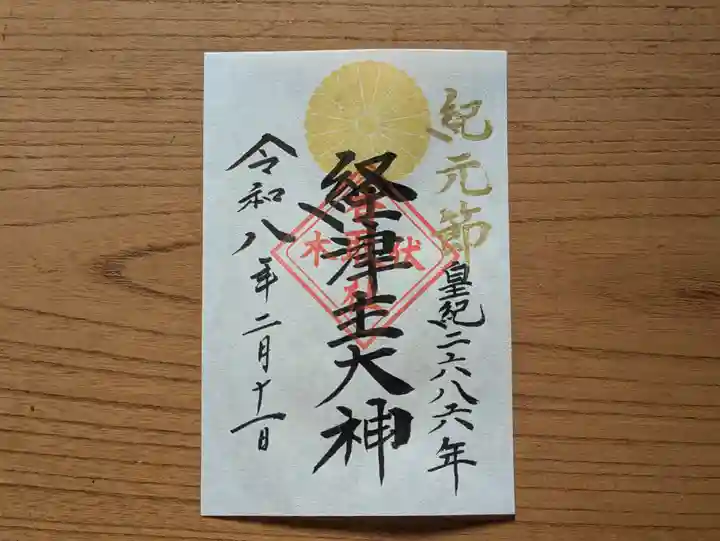 紀元節
皇紀二六八六年
経津主大神
令和八年二月十一日